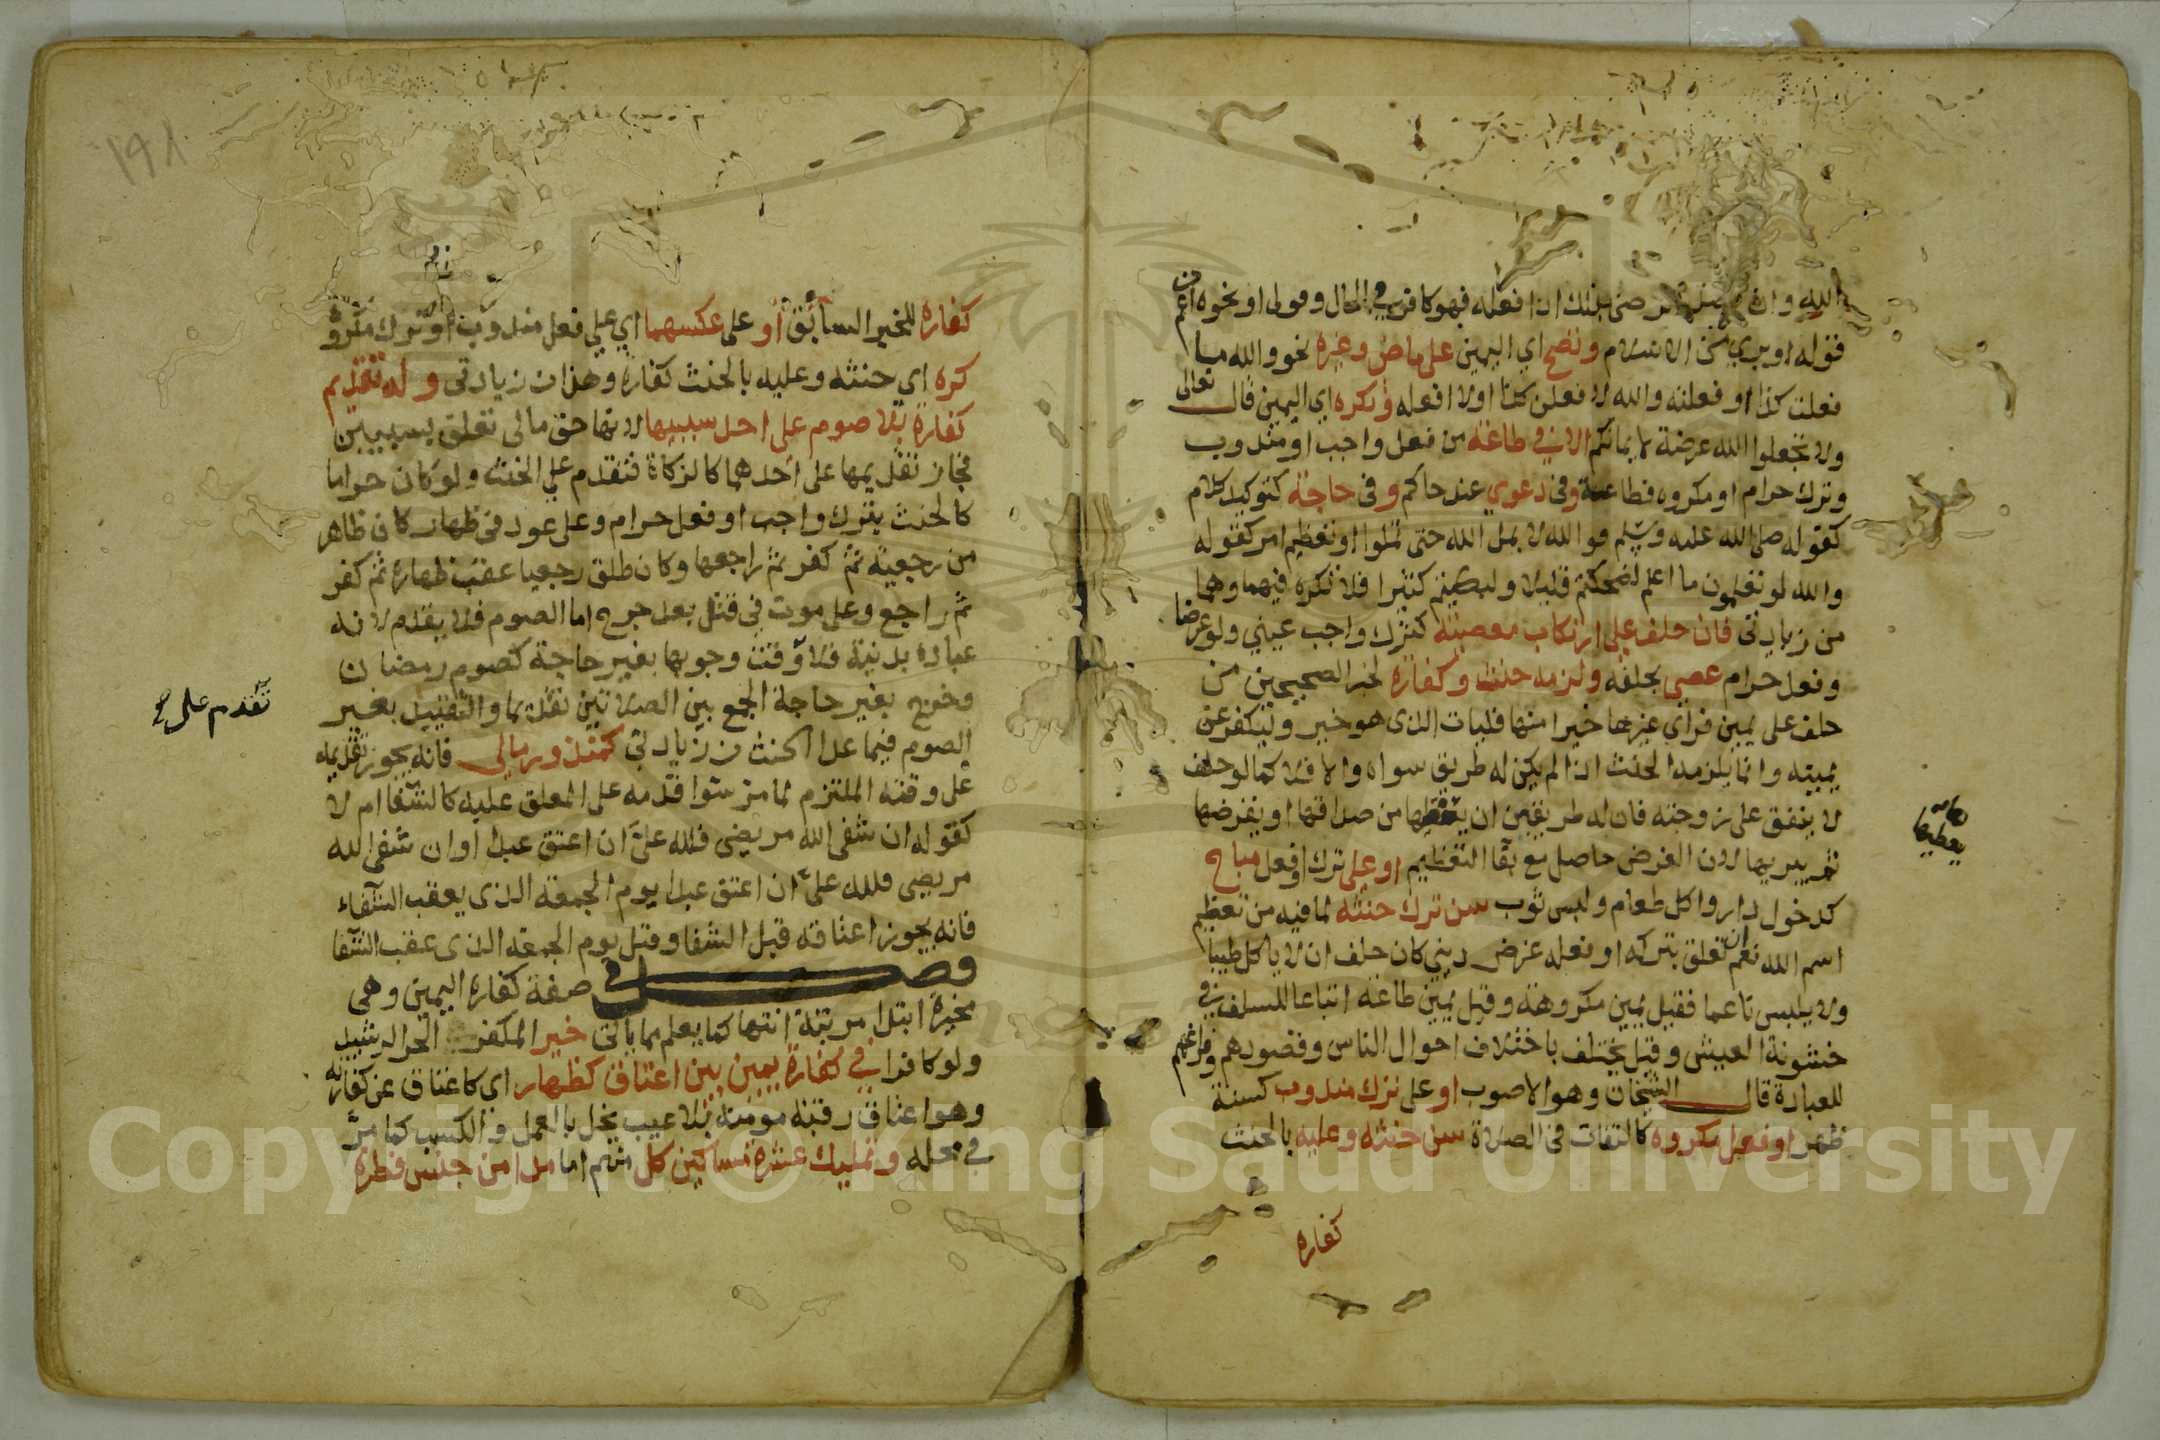 الله وان قصد الرضى بذلك اذا فعله فهو كافر في الحال وقولى او نحوه اعم من
قوله او بري من الاسلام وتصح اي اليمين على ماض وغيره نحو والله ما
فعلت كذا او فعلته والله لا فعلن كذا او لا افعله وتكره اي اليمين قال تعالى
ولا تجعلوا الله عرضة لايمانكم الا في طاعة من فعل واجب او مندوب
وترك حرام او مكروه فطاعة وفي دعوي عند حاكم و في حاجة كتوكيد كلام
كقوله صلى الله عليه وسلم فوالله لا يمل الله حتى تملوا او تعظيم امر كقوله
والله لو تعلمون ما اعلم لضحكتم قليلا ولبكيتم كثيرا فلا تكره فيهما وهما
من زيادتى فان حلف على ارتكاب معصية كترك واجب عيني ولو عرضا
وفعل حرام عصي بحلفه ولزمه حنث وكفارة لخبر الصحيحين من
حلف على يمين فراي غيرها خيرا منها فليات الذى هو خير وليكفر عن
يمينه وانما يلزمه الحنث اذا لم يكن له طريق سواه والا فلا كما لو حلف
لا ينفق على زوجته فان له طريقين ان يعطيها من صداقها او يقرضها
ثم يبريها لان الغرض حاصل مع بقا التعظيم او على ترك او فعل مباح
كدخول دار واكل طعام ولبس ثوب سن ترك حنثه لما فيه من تعظيم
اسم الله نعم ان تعلق بتركه او فعله غرض ديني كان حلف ان لا ياكل طيبا
ولا يلبس ناعما فقيل يمين مكروهة وقيل يمين طاعة اتباعا للسلف في
خشونة العيش وقيل يختلف باختلاف احوال الناس وقصودهم وفراغهم
للعبادة قال الشيخان وهو الاصوب او على ترك مندوب كسنة
ظهر او فعل مكروه كالتفات فى الصلاة سن حنثه وعليه بالحنث
كفارة
يعطيها
كفارة للخبر السابق او على عكسهما اي على فعل مندوب او ترك مكروه
كره اي حنثه وعليه بالحنث كفارة وهذان زيادتى وله تقديم
كفارة بلا صوم على احد سببيها لانها حق مالى تعلق بسببين
فجاز تقديمها على احدهما كالزكاة فتقدم على الحنث ولو كان حراما
كالحنث بترك واجب او فعل حرام وعلى عود فى ظهار كان ظاهر
من رجعية ثم كفر ثم راجعها وكان طلق رجعيا عقب ظهاره ثم كفر
ثم راجع وعلى موت في قتل بعد جرح اما الصوم فلا يقدم لانه
عبادة بدنية فلا تقدم وقت وجوبها بغير حاجة كصوم رمضان
وخرج بغير حاجة الجمع بين الصلاتين تقديما والتقييد بغير
الصوم فيما عدا الحنث من زيادتى كمنذور مالى فانه يجوز تقديمه
على وقته الملتزم لما مر سوا قدمه على المعلق عليه كالشفا ام لا
كقوله ان شفى الله مريضى فلله على ان اعتق عبدا او ان شفى الله
مريضى فلله على ان اعتق عبدا يوم الجمعة الذى يعقب الشفاء
فانه يجوز اعتاقه قبل الشفا وقبل يوم الجمعة الذى عقب الشفا
فصل في صفة كفارة اليمين وهى
مخيرة ابتدا مرتبة انتها كما يعلم مما ياتى خير المكفر الحر الرشيد
ولو كافرا في كفارة يمين بين اعتاق كظهار اى كاعتاق عن كفارته
وهو اعتاق رقبة مومنة بلا عيب يخل بالعمل والكسب كما مر
في محله وتمليك عشرة مساكين كل منهم اما مدا من جنس فطرة
تقدم على
١٩٨